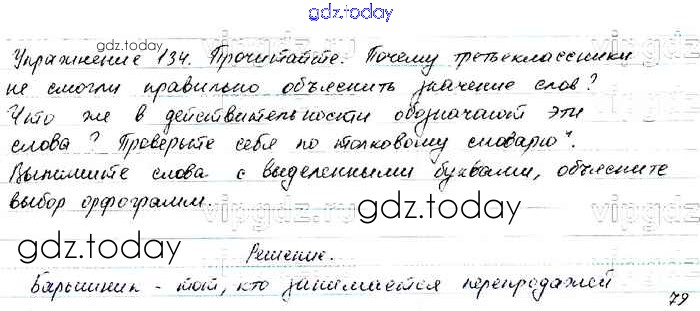 gdz.today
Упражнение 134. Прочитайте. Почему третьеклассники
не смогли правильно объяснить значение слов?
Что же в действительности обозначают эти
слова? Проверьте себя по толковому словарю".
Выпишите слова с выделенными буквами, объясните
выбор орфограмм.
gdz.today
gdz.today
gdz.today
vipgdz.ru
Решение.
Барышник - тот, кто занимается перепродажей
79